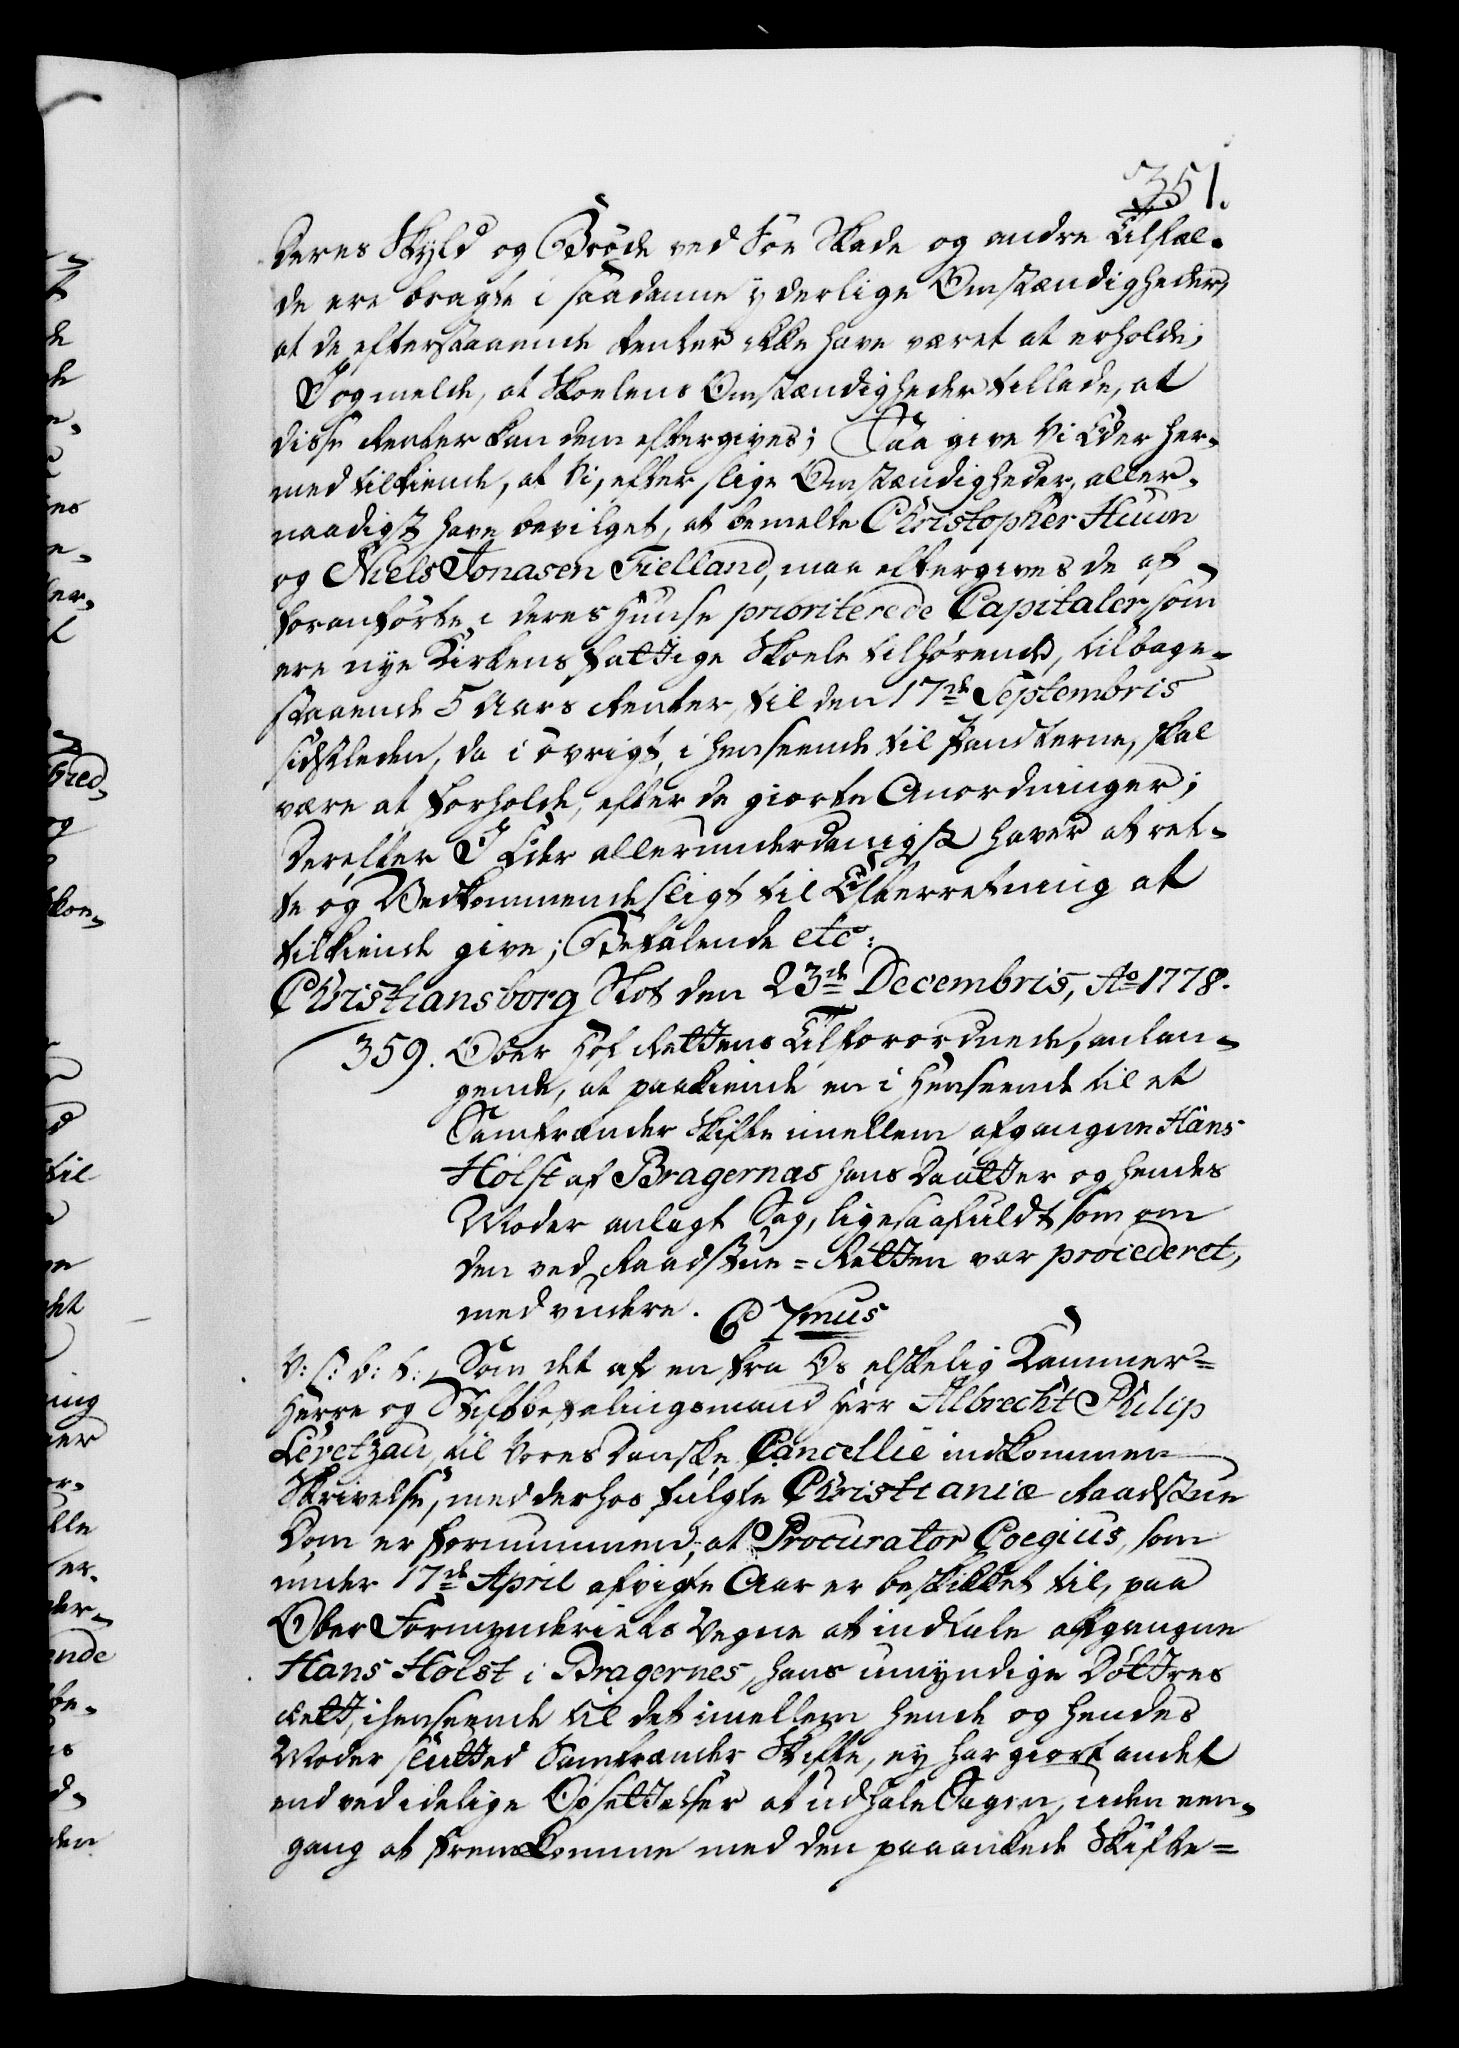 351.
deres Skyld og Brøde ved Søe Skade og andre Tilfæl-
de ere bragte i saadanne yderlige Omstændigheder,
at de efterstaaende Renter ikke have været at erholde;
I og melde, at Skoelens Omstændigheder tillade, at
disse Renter kan dem eftergives; Saa give Vi Eder her-
med tilkiende, at Vi, efter slige Omstændigheder, aller-
naadigst have bevilget, at bemelte Christopher Huun
og Niels Jonasen Fielland, maa eftergives de af
foranførte i deres Huuse prioriterede Capitaler, som
ere nye Kirkens Fattige Skoele tilhørende, tilbage-
staaende 5 Aars Renter, til den 17de Septembris
sidstleden, da i øvrigt, i henseende til Pandterne, skal
være at forholde, efter de giorte Anordninger;
Derefter I Eder allerunderdanigst haver at ret-
te og Vedkommende sligt til Efterretning at
tilkiende give; Befalende etc:
Christiansborg Slot den 23de Decembris, Ao 1778.
359. Over Hof Rettens Tilforordnede, anlan-
gende, at paakiende en i Henseende til et
Samfrænder Skifte imellem afgangne Hans
Holst af Bragernæs hans Daatter og hendes
Moder anlagt Sag, ligesaafuldt som om
den ved Raadstue-Retten var procederet,
med videre. C 7mus
V: S: b: t:, Som det af en fra Os elskelig Kammer-
Herre og Stiftbefalingsmand Herr Albrecht Philip
Levetzau, til Vores Danske Cancellie indkommen
Skrivelse, med derhos fulgte Christianiæ Raadstue
Dom er fornummen, at Procurator Coegius, som
under 17de April afvigte Aar er beskikket til, paa
Over Formynderiets Vegne at indtale afgangne
Hans Holst i Bragernes, hans umyndige Døttres
Rett, i henseende til det imellem hende og hendes
Moder slutted Samfrænder Skifte, ey har giort andet
end ved idelige Opsættelser at udhale Sagen, uden een-
gang at fremkomme med den paaankede Skifte=